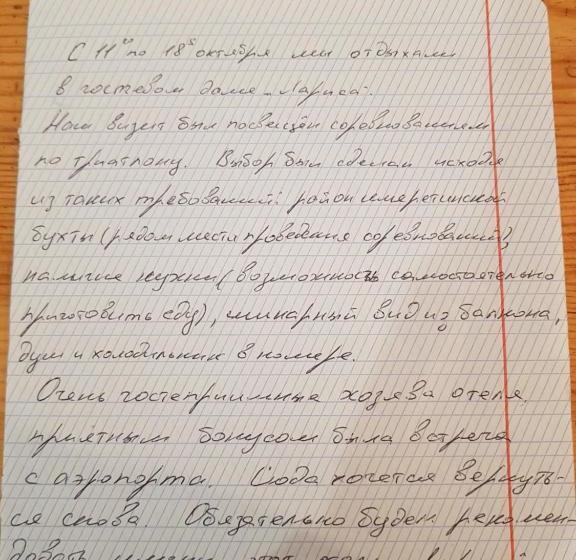 С 11го по 18е октября мы отдыхали
в гостевом доме „Лариса".
Наш визит был посвещён соревнованиям
по триатлону. Выбор был сделан исходя
из таких требований: район имеретинской
бухты (рядом места проведения соревнований),
наличие кухни (возможность самостоятельно
приготовить еду), вид из балкона,
душ и холодильник в номере.
Очень гостеприимные хозяева отеля,
приятным бонусом была встреча
с аэропорта. Сюда хочется вернуть-
ся снова. Обязательно будем рекомен-
довать этот